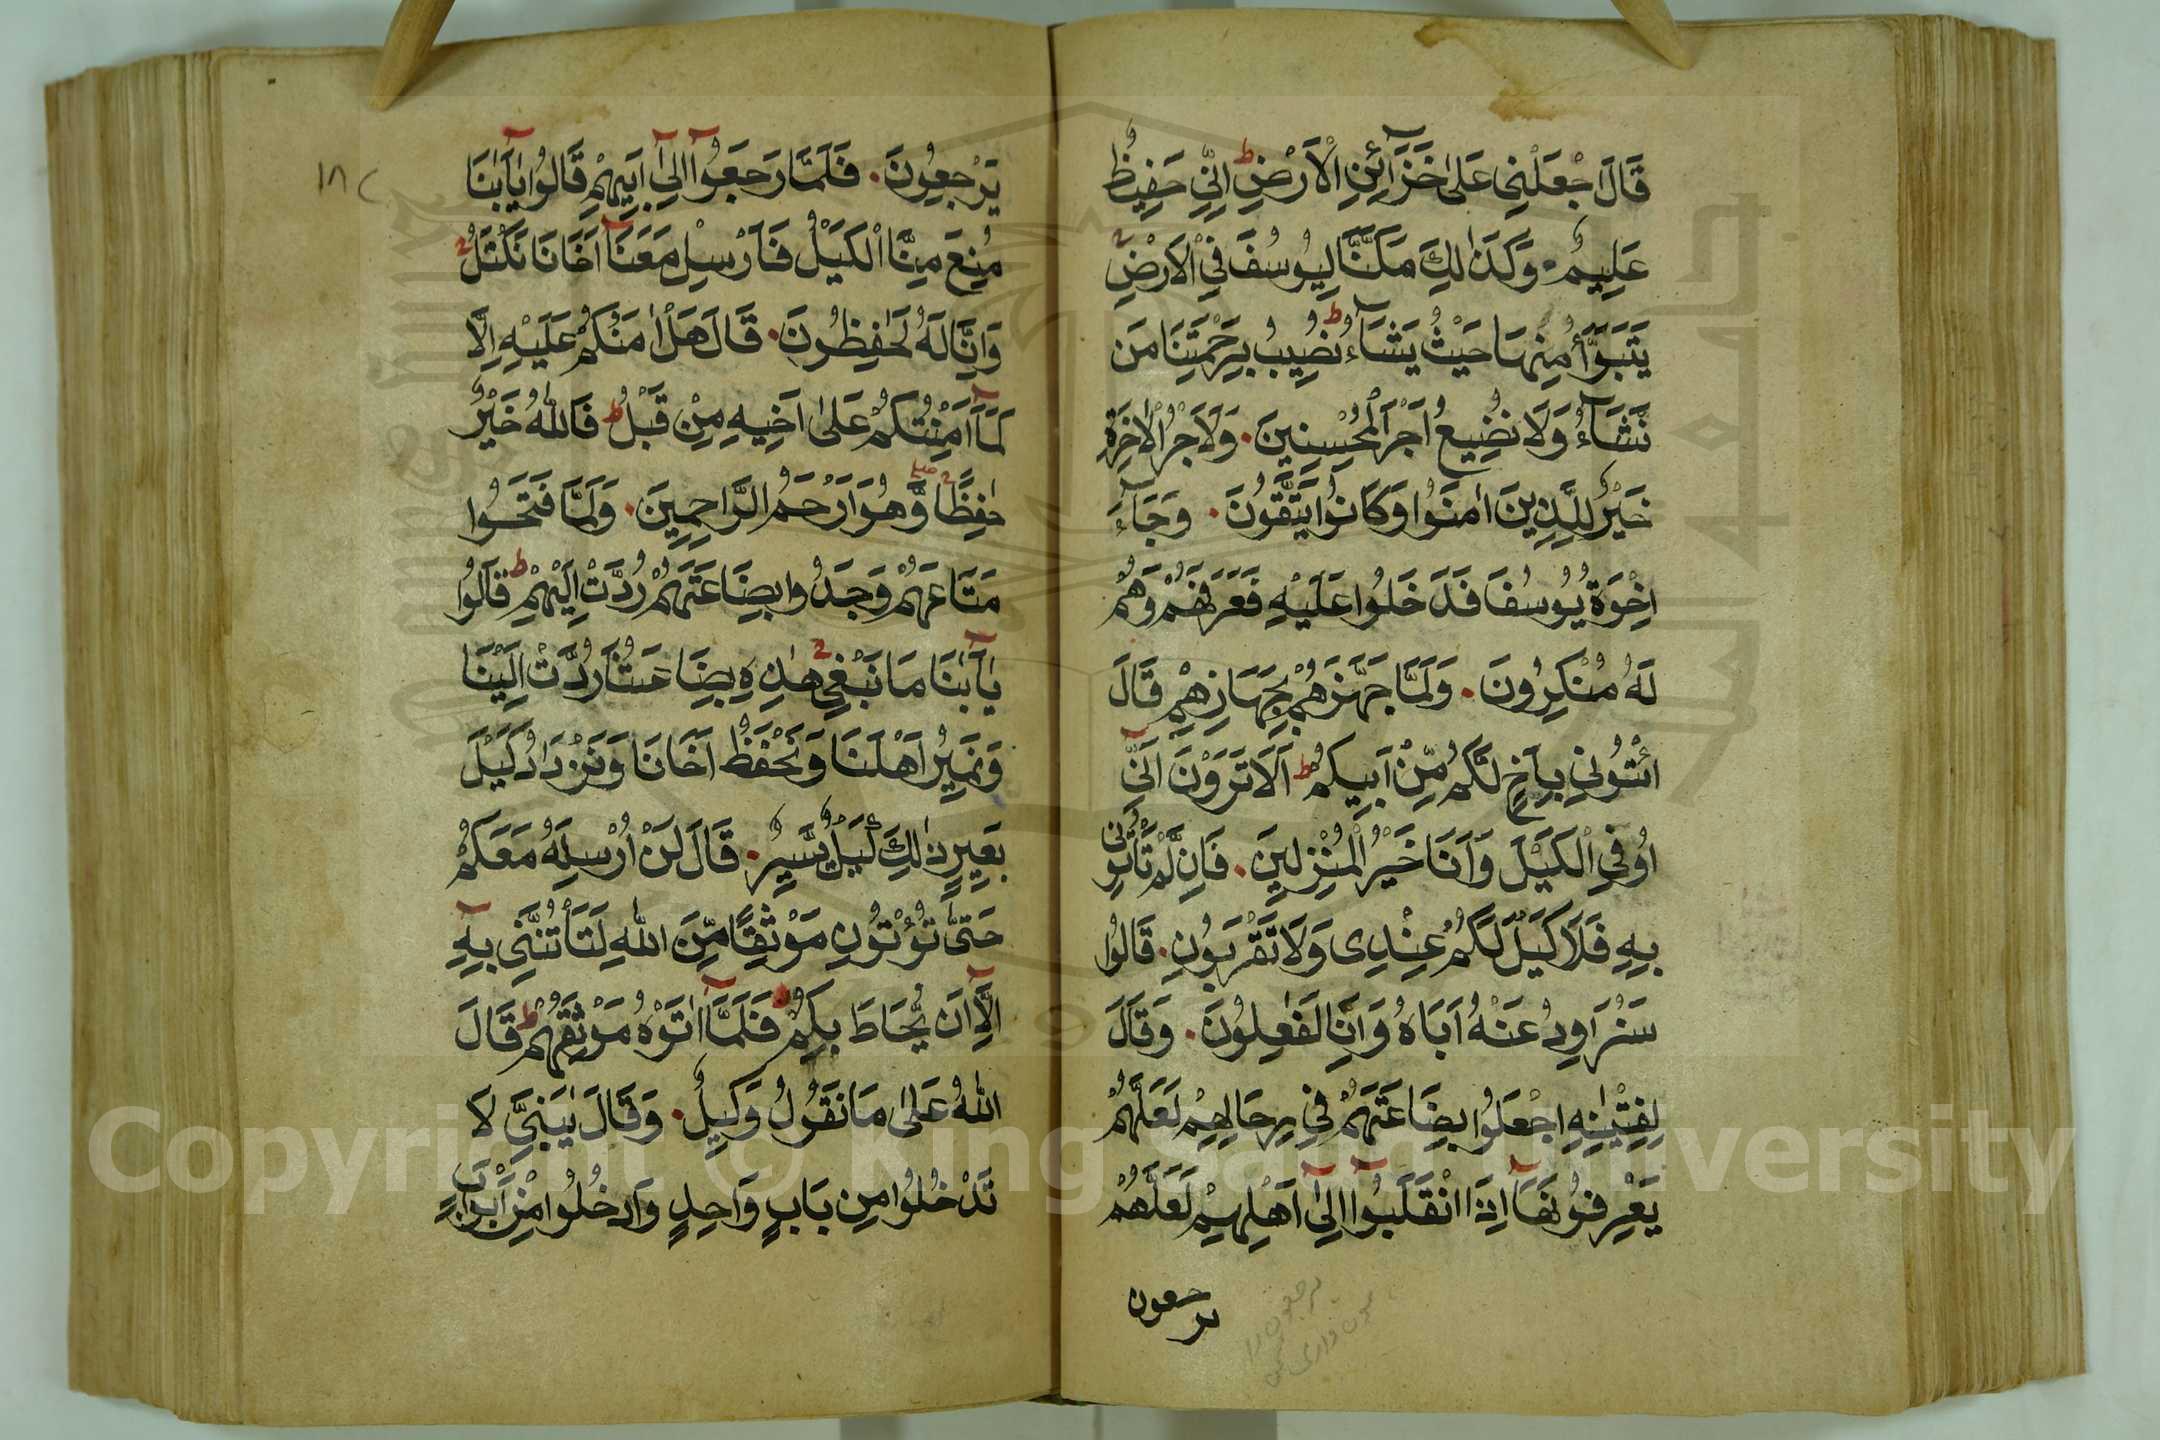 قَالَ اجْعَلْنِي عَلٰى خَزَآئِنِ الْاَرْضِ ط اِنِّي حَفِيظٌ
عَلِيمٌ وَكَذٰلِكَ مَكَّنَّا لِيُوسُفَ فِي الْاَرْضِ
يَتَبَوَّأُ مِنْهَا حَيْثُ يَشَآءُ ط نُصِيبُ بِرَحْمَتِنَا مَن
نَّشَآءُ وَلَا نُضِيعُ اَجْرَ الْمُحْسِنِينَ وَلَاَجْرُ الْاٰخِرَةِ
خَيْرٌ لِلَّذِينَ اٰمَنُوا وَكَانُوا يَتَّقُونَ وَجَآءَ
اِخْوَةُ يُوسُفَ فَدَخَلُوا عَلَيْهِ فَعَرَفَهُمْ وَهُمْ
لَهُ مُنْكِرُونَ وَلَمَّا جَهَّزَهُمْ بِجَهَازِهِمْ قَالَ
ائْتُونِي بِاَخٍ لَّكُمْ مِّنْ اَبِيكُمْ ط اَلَا تَرَوْنَ اَنِّي
اُوفِي الْكَيْلَ وَاَنَا خَيْرُ الْمُنْزِلِينَ فَاِن لَّمْ تَأْتُونِي
بِهِ فَلَا كَيْلَ لَكُمْ عِنْدِى وَلَا تَقْرَبُونِ قَالُوا
سَنُرَاوِدُ عَنْهُ اَبَاهُ وَاِنَّا لَفٰعِلُونَ وَقَالَ
لِفِتْيٰنِهِ اجْعَلُوا بِضَاعَتَهُمْ فِي رِحَالِهِمْ لَعَلَّهُمْ
يَعْرِفُونَهَآ اِذَا انْقَلَبُوآ اِلٰىٓ اَهْلِهِمْ لَعَلَّهُمْ
يرجعون
١٨
يَرْجِعُونَ فَلَمَّا رَجَعُوآ اِلٰىٓ اَبِيهِمْ قَالُوا يٰٓاَبَانَا
مُنِعَ مِنَّا الْكَيْلُ فَاَرْسِلْ مَعَنَآ اَخَانَا نَكْتَلْ
وَاِنَّا لَهُ لَحٰفِظُونَ قَالَ هَلْ اٰمَنُكُمْ عَلَيْهِ اِلَّا
كَمَآ اَمِنْتُكُمْ عَلٰى اَخِيهِ مِنْ قَبْلُ ط فَاللّٰهُ خَيْرٌ
حٰفِظًا وَّهُوَ اَرْحَمُ الرَّاحِمِينَ وَلَمَّا فَتَحُوا
مَتَاعَهُمْ وَجَدُوا بِضَاعَتَهُمْ رُدَّتْ اِلَيْهِمْ ط قَالُوا
يٰٓاَبَانَا مَا نَبْغِي هٰذِهِ بِضَاعَتُنَا رُدَّتْ اِلَيْنَا
وَنَمِيرُ اَهْلَنَا وَنَحْفَظُ اَخَانَا وَنَزْدَادُ كَيْلَ
بَعِيرٍ ذٰلِكَ كَيْلٌ يَّسِيرٌ قَالَ لَنْ اُرْسِلَهُ مَعَكُمْ
حَتّٰى تُؤْتُونِ مَوْثِقًا مِّنَ اللّٰهِ لَتَأْتُنَّنِي بِهِ
اِلَّآ اَن يُّحَاطَ بِكُمْ فَلَمَّآ اٰتَوْهُ مَوْثِقَهُمْ ط قَالَ
اللّٰهُ عَلٰى مَا نَقُولُ وَكِيلٌ وَقَالَ يٰبَنِيَّ لَا
تَدْخُلُوا مِن بَابٍ وَاحِدٍ وَادْخُلُوا مِنْ اَبْوَابٍ
Copyright © King Saud University